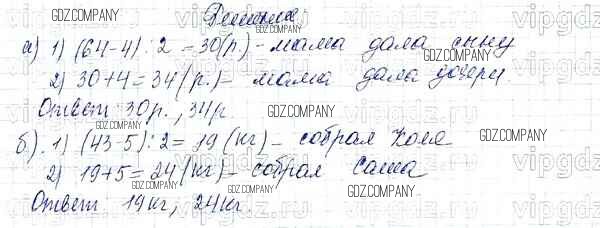 Решение
GDZ.COMPANY
а) 1) (64-4) : 2 = 30 (р.) - мама дала сыну
2) 30+4=34 (р.) - мама дала дочери.
Ответ: 30р., 34р.
GDZ.COMPANY
б). 1) (43-5) : 2 = 19 (кг) - собрал Коля
2) 19+5=24 (кг) - собрал Саша
Ответ: 19кг, 24кг
GDZ.COMPANY
vipgdz.ru